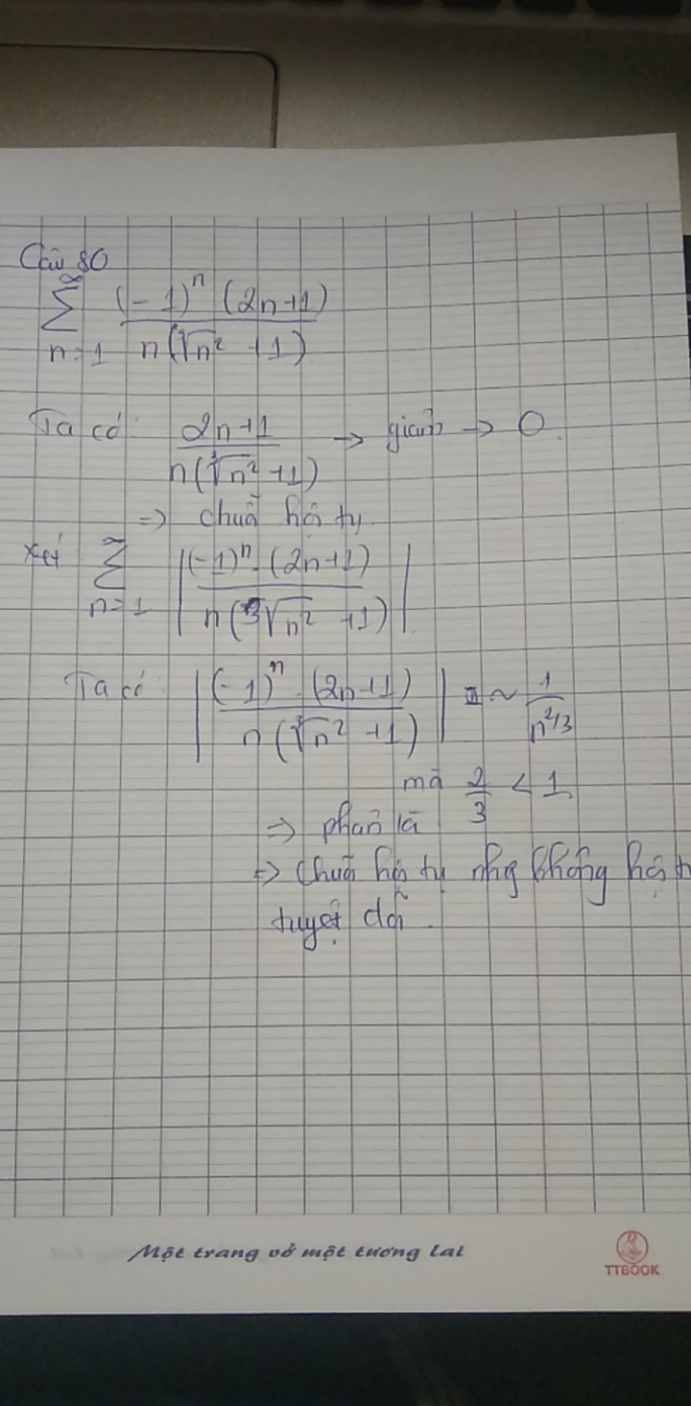 Câu 80
∑_{n=1}^{∞} (-1)^n (2n+1) / n(∛n² + 1)
Ta có: 2n+1 / n(∛n² + 1) → giảm → 0.
=> chuỗi hội tụ.
Xét ∑_{n=1}^{∞} | (-1)^n . (2n+1) / n(∛n² + 1) |
Ta có | (-1)^n . (2n+1) / n(∛n² + 1) | ~ 1 / n^{2/3}
mà 2/3 < 1.
=> phân kì
=> Chuỗi hội tụ nhg không hội
tuyệt đối.
Một trang vở một tương lai
TTBOOK